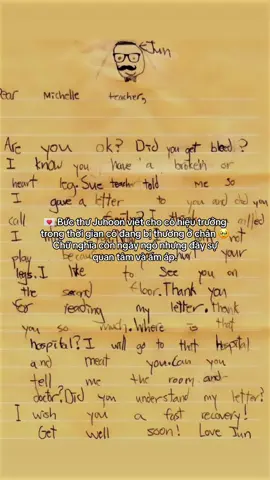 Jun
Dear Michelle teacher,
Are you ok? Did you get blood?
I know you have a broken or
heart leg. Sue teacher told me so
I gave a letter to you and did you
call
💌 Bức thư Juhoon viết cho cô hiệu trưởng
trong thời gian cô đang bị thương ở chân 🥺
Chữ nghĩa còn ngây ngô nhưng đầy sự
quan tâm và ấm áp.
play because your
legs. I like to see you on
the second floor. Thank you
for reading my letter. thank
you so much. Where is that
hospital? I will go to that Hospital
and meat you. Can you
tell me the room and
doctor? Did you understand my letter?
I wish you a fast recovery!
Get well soon! Love Jun